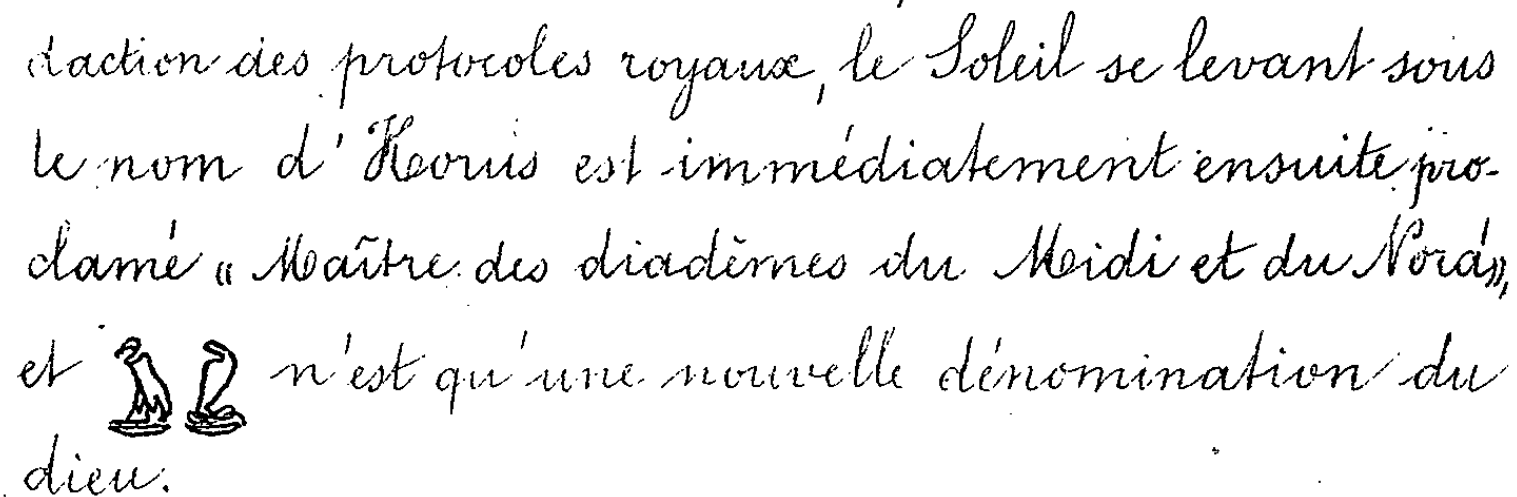 daction des protocoles royaux, le Soleil se levant sous
le nom d'Horus est immédiatement ensuite pro-
clamé « Maître des diadèmes du Midi et du Nord »,
et 𓅒𓆗 n'est qu'une nouvelle dénomination du
dieu.